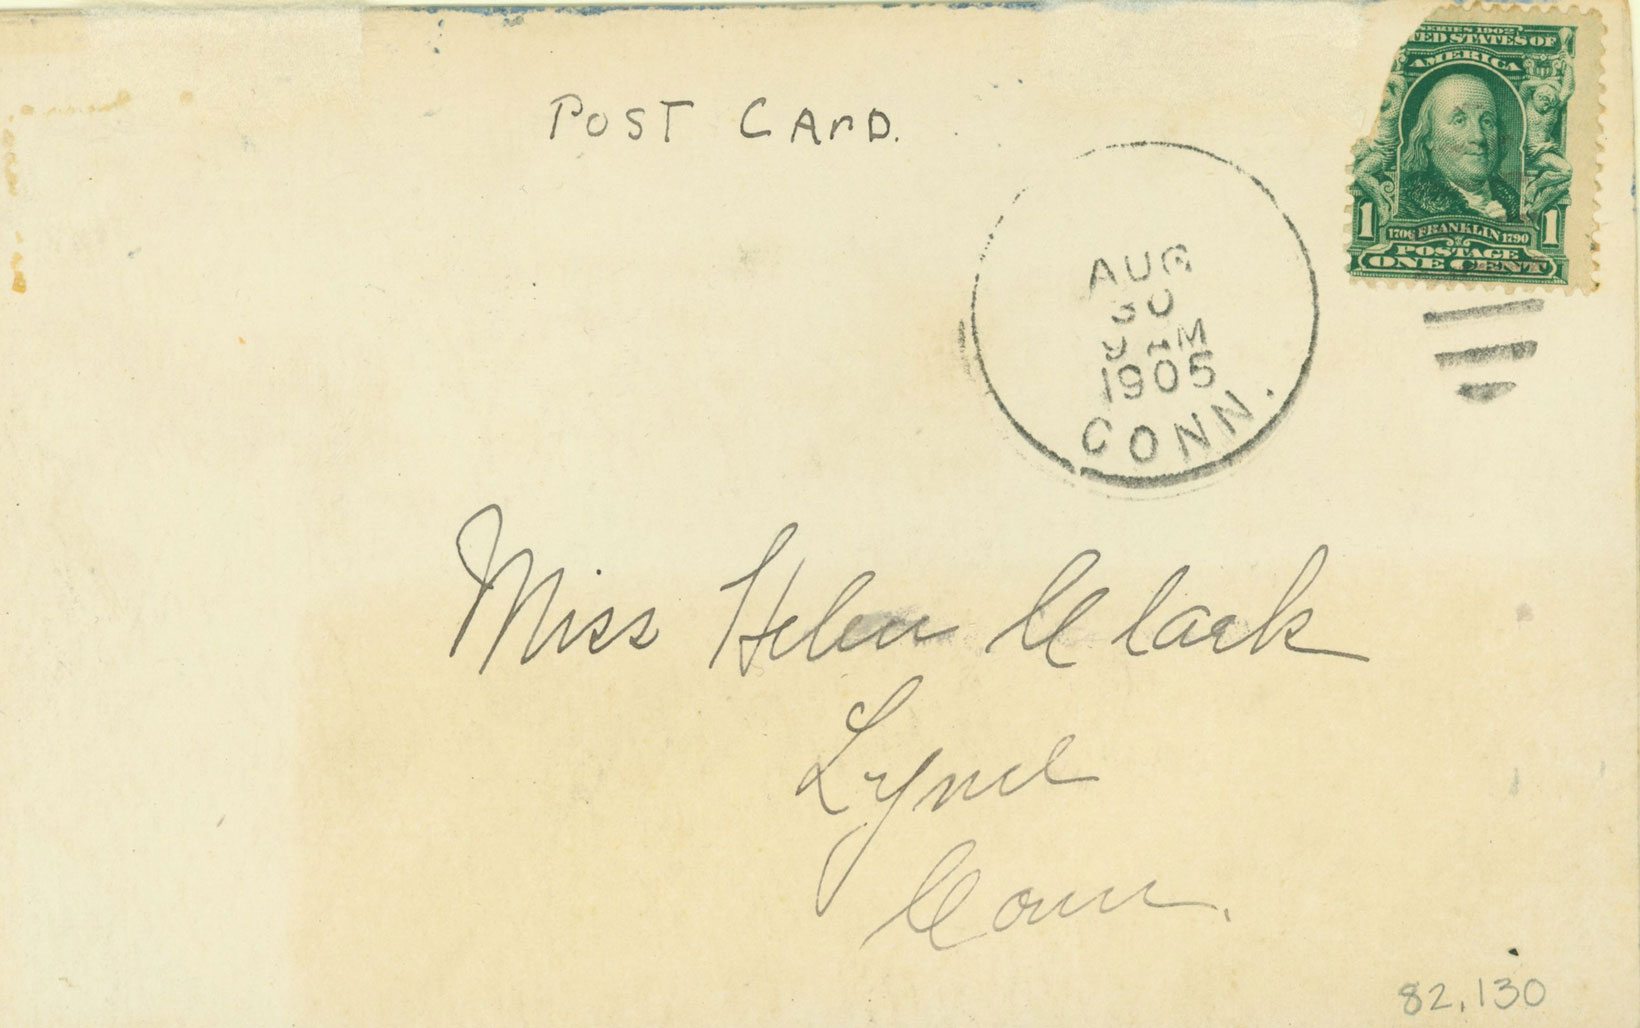 POST CARD.
SERIES 1902
TED STATES OF
AMERICA
1 1
1706 FRANKLIN 1790
POSTAGE
ONE CENT
AUG
30
9 AM
1905
CONN.
Miss Helen Clark
Lyme
Conn.
82.130